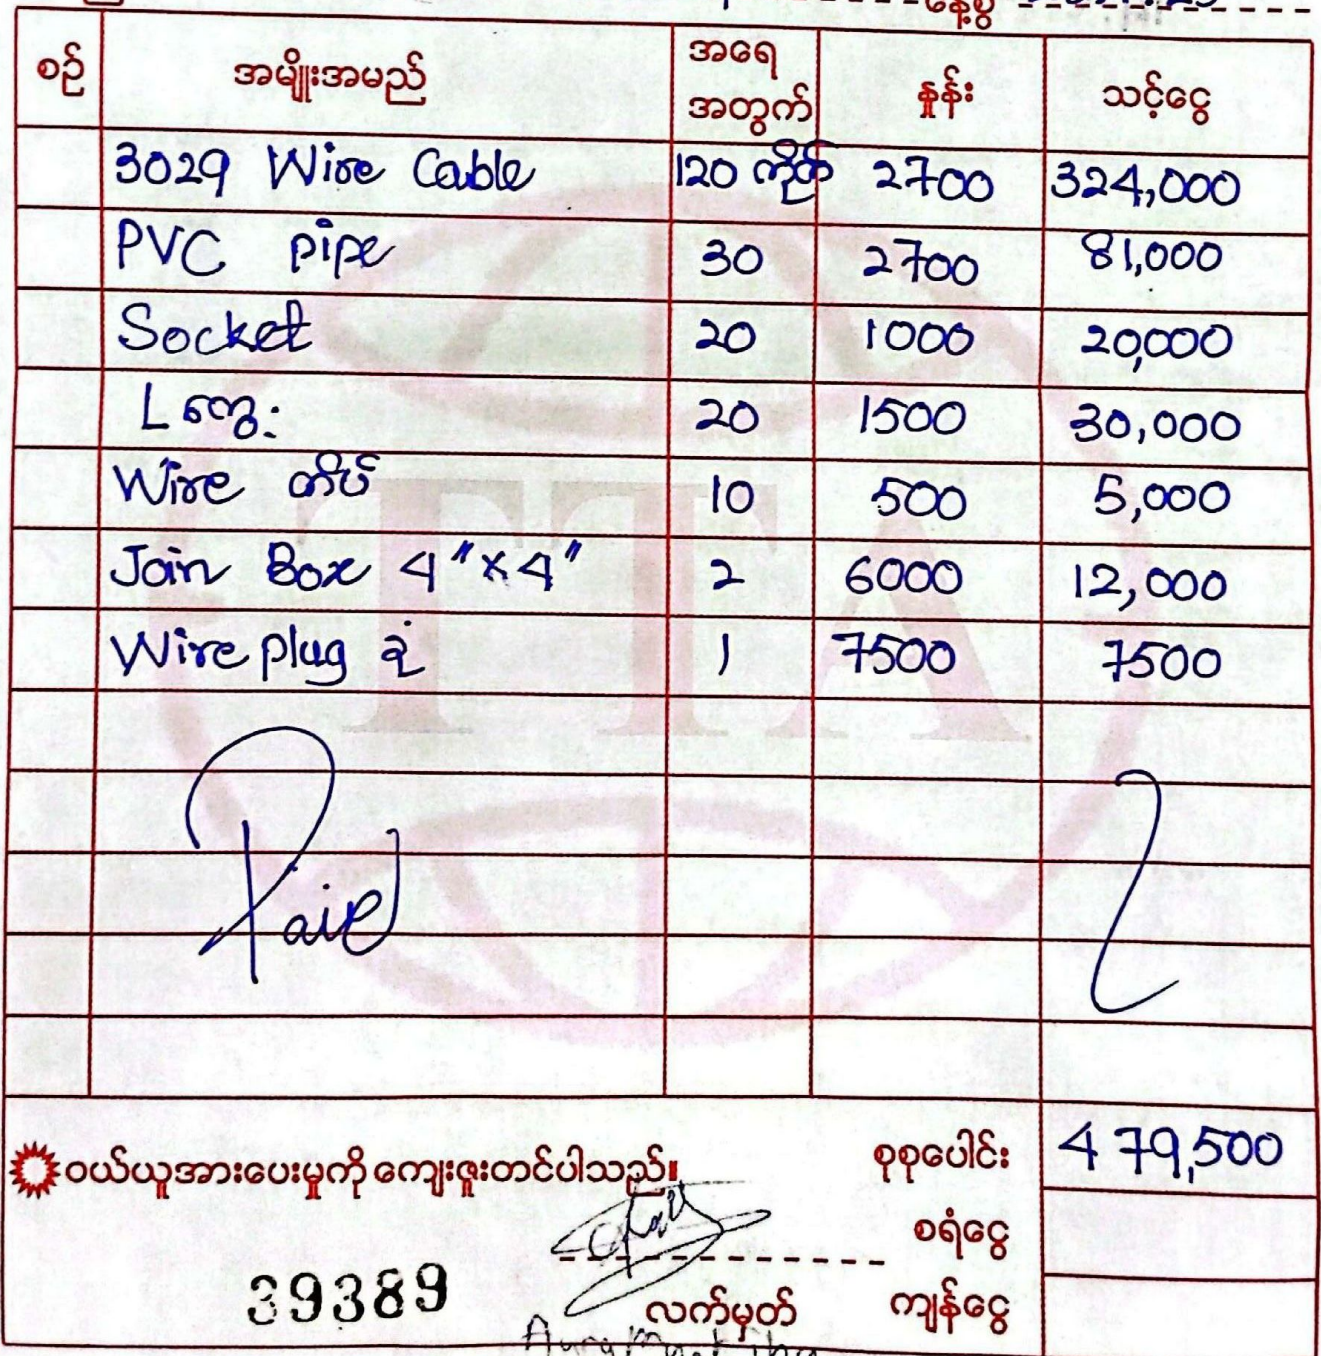 နေ့စွဲ
စဉ် အမျိုးအမည် အရေအတွက် နှုန်း သင့်ငွေ
3029 Wire Cable 120 ကိုက် 2700 324,000
PVC pipe 30 2700 81,000
Socket 20 1000 20,000
L ကွေ့: 20 1500 30,000
Wire တိပ် 10 500 5,000
Join Box 4"x4" 2 6000 12,000
Wire plug ခုံ 1 7500 7500
TTA
Paid
ဝယ်ယူအားပေးမှုကို ကျေးဇူးတင်ပါသည်။ စုစုပေါင်း 479,500
စရံငွေ
39389 လက်မှတ် ကျန်ငွေ